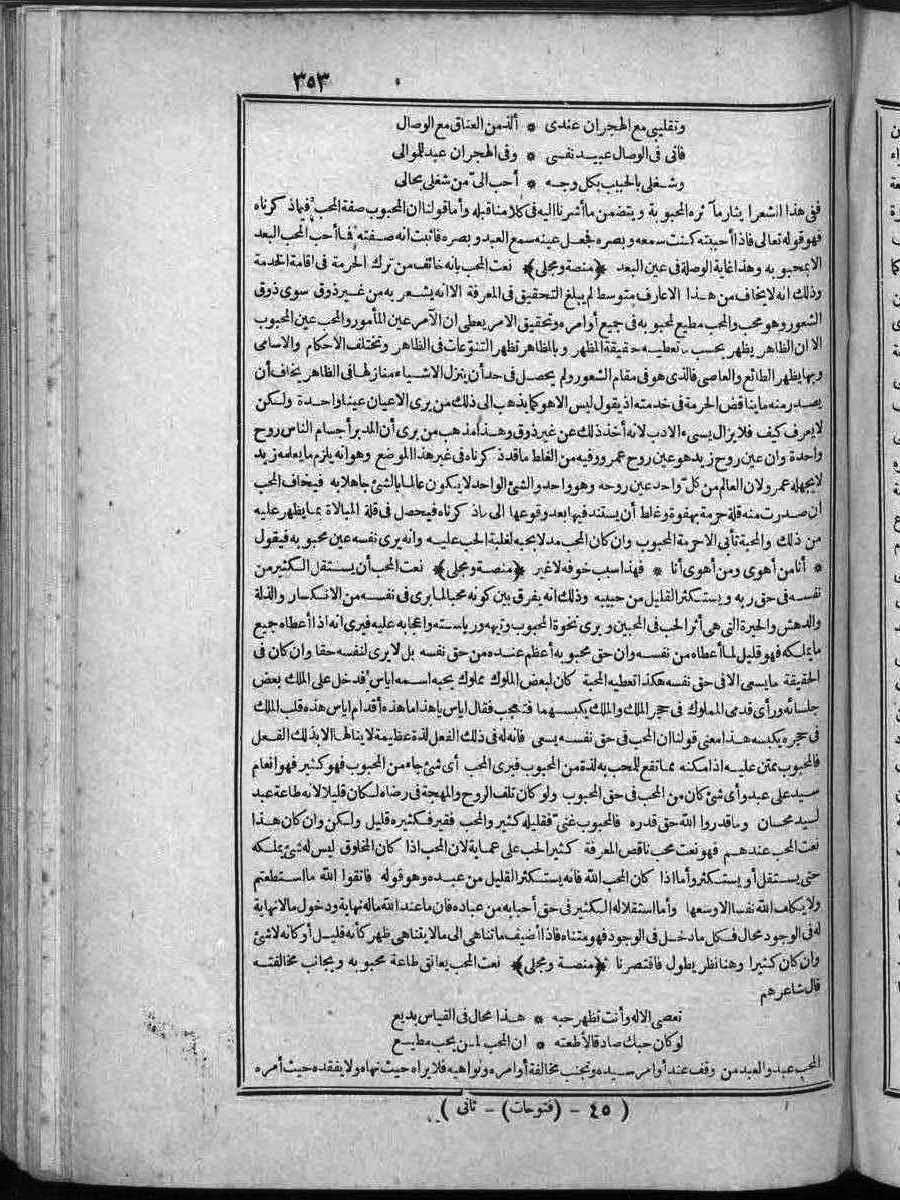 ٣٥٣
وتقليبي مع الهجران عندى * ألذ من العناق مع الوصال
فانى فى الوصال عبيد نفسى * وفى الهجران عبد للموالى
وشغلى بالحبيب بكل وجه * أحب الىّ من شغلى بحالى
ففى هذا الشعر ايثار ما آثره المحبوب به ويتضمن ما أشرنا اليه فى كلامنا قبله وأما قولنا ان المحبوب صفة المحب فيما ذكرناه
فهو قوله تعالى فاذا أحببته كنت سمعه وبصره فجعل عينه سمع العبد وبصره فاثبت انه صفته فما أحب المحب البعد
الا بمحبوبه وهذا غاية الوصلة فى عين البعد ﴿منصة ومجلى﴾ نعت المحب بانه خائف من ترك الحرمة فى اقامة الخدمة
وذلك انه لا يخاف من هذا الا عارف متوسط لم يبلغ التحقيق فى المعرفة الا انه يشعر به من غير ذوق سوى ذوق
الشعور وهو محب والمحب مطيع لمحبوبه فى جميع أوامره وتحقيق الامر يعطى ان الآمر عين المأمور والمحب عين المحبوب
الا ان الظاهر يظهر بحسب ما تعطيه حقيقة المظهر وبالمظاهر تظهر التنوّعات فى الظاهر وتختلف الاحكام والاسامى
وبها يظهر الطائع والعاصى فالذى هو فى مقام الشعور ولم يحصل فى حد أن ينزل الاشياء منازلها فى الظاهر يخاف أن
يصدر منه ما يناقض الحرمة فى خدمته اذ يقول ليس الا هو كما يذهب الى ذلك من يرى الاعيان عينا واحدة ولكن
لا يعرف كيف فلا يزال يسىء الادب لانه أخذ ذلك عن غير ذوق وهذا مذهب من يرى أن المدبر أجسام الناس روح
واحدة وان عين روح زيد هو عين روح عمرو وفيه من الغلط ما قد ذكرناه فى غير هذا الموضع وهو انه يلزم ما يعلمه زيد
لا يجهله عمرو لان العالم من كل واحد عين روحه وهو واحد والشئ الواحد لا يكون عالما بالشئ جاهلا به فيخاف المحب
ان صدرت منه قلة حرمة بهفوة وغلط أن يستند فيها بعد وقوعها الى ما ذكرناه فيحصل فى قلة المبالاة بما يظهر عليه
من ذلك والمحبة تأبى الا حرمة المحبوب وان كان المحب مدلا بحبه لغلبة الحب عليه وانه يرى نفسه عين محبوبه فيقول
* أنا من أهوى ومن أهوى أنا * فهذا سبب خوفه لا غير ﴿منصة ومجلى﴾ نعت المحب أن يستقل الكثير من
نفسه فى حق ربه ويستكثر القليل من حبيبه وذلك انه يفرق بين كونه محبا لما يرى فى نفسه من الانكسار والذلة
والدهش والحيرة التى هى أثر الحب فى المحبين ويرى نخوة المحبوب وتيهه ورياسته واعجابه عليه فيرى انه اذا أعطاه جميع
ما يملكه فهو قليل لما أعطاه من نفسه وان حق محبوبه أعظم عنده من حق نفسه بل لا يرى لنفسه حقا وان كان فى
الحقيقة ما يسى الا فى حق نفسه هكذا تعطيه المحبة كان لبعض الملوك مملوك يحبه اسمه اياس فدخل على الملك بعض
جلسائه ورأى قدمى المملوك فى حجر الملك والملك يكبسهما فتعجب فقال اياس يا هذا ما هذه أقدام اياس هذه قلب الملك
فى حجره يكبسه هذا معنى قولنا ان المحب فى حق نفسه يسعى فانه له فى ذلك الفعل لذة عظيمة لا ينالها الا بذلك الفعل
فالمحبوب يمتن عليه اذا مكنه مما تقع للمحب به لذة من المحبوب فيرى المحب أى شئ جاء من المحبوب فهو كثير فهو انعام
سيد على عبد وأى شئ كان من المحب فى حق المحبوب ولو كان تلف الروح والمهجة فى رضاه لكان قليلا لانه طاعة عبد
لسيد محسان وما قدروا الله حق قدره فالمحبوب غنىّ فقليله كثير والمحب فقير فكثيره قليل ولكن وان كان هذا
نعت المحب عندهم فهو نعت محب ناقص المعرفة كثير الحب على عماية لان المحب اذا كان المخلوق ليس له شئ يملكه
حتى يستقل أو يستكثر وأما اذا كان المحب الله فانه يستكثر القليل من عبده وهو قوله فاتقوا الله ما استطعتم
ولا يكلف الله نفسا الا وسعها وأما استقلاله الكثير فى حق أحبابه من عباده فان ما عند الله ما له نهاية ودخول ما لا نهاية
له فى الوجود محال فكل ما دخل فى الوجود فهو متناه فاذا أضيف ما تناهى الى ما لا يتناهى ظهر كأنه قليل أو كأنه لا شئ
وان كان كثيرا وهنا نظر يطول فاقتصرنا ﴿منصة ومجلى﴾ نعت المحب يعانق طاعة محبوبه ويجانب مخالفته
قال شاعرهم
تعصى الاله وأنت تظهر حبه * هذا محال فى القياس بديع
لو كان حبك صادقا لأطعته * ان المحب لمن يحب مطيع
المحب عبد والعبد من وقف عند أوامر سيده وتجنب مخالفة أوامره ونواهيه فلا يراه حيث نهاه ولا يفقده حيث أمره
( ٤٥ - (فتوحات) - ثانى )